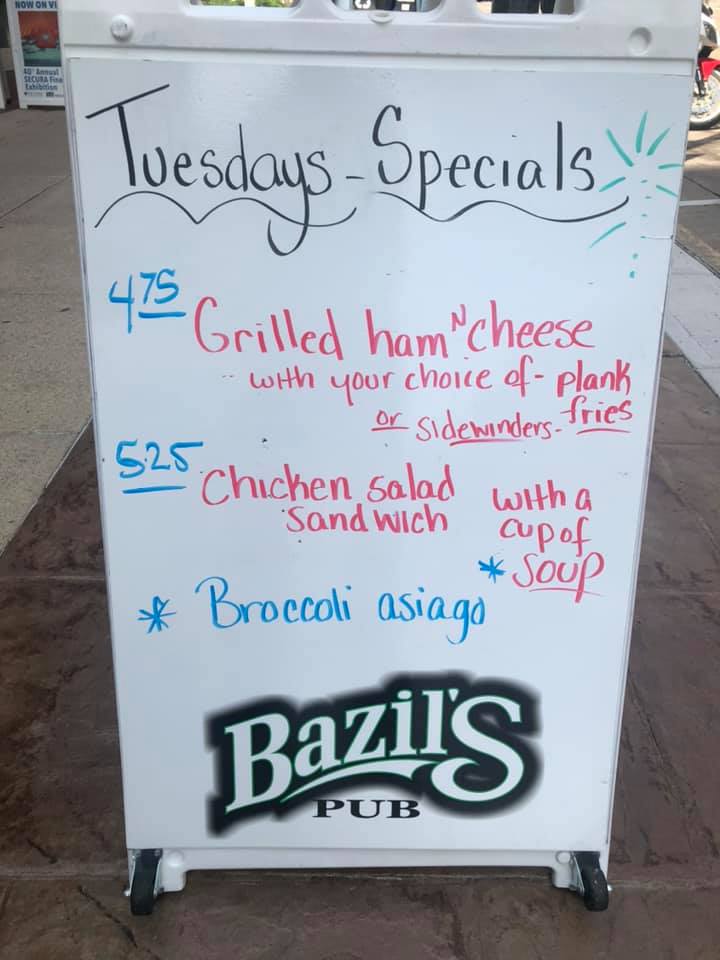 NOW ON VI
40th Annual
SECURA Fine
Exhibition
Tuesdays - Specials
4 75
Grilled ham N cheese
-- with your choice of - plank
or sidewinders - fries
5.25
Chicken salad
Sandwich
with a
cup of
* Soup
* Broccoli asiago
Bazil's
PUB